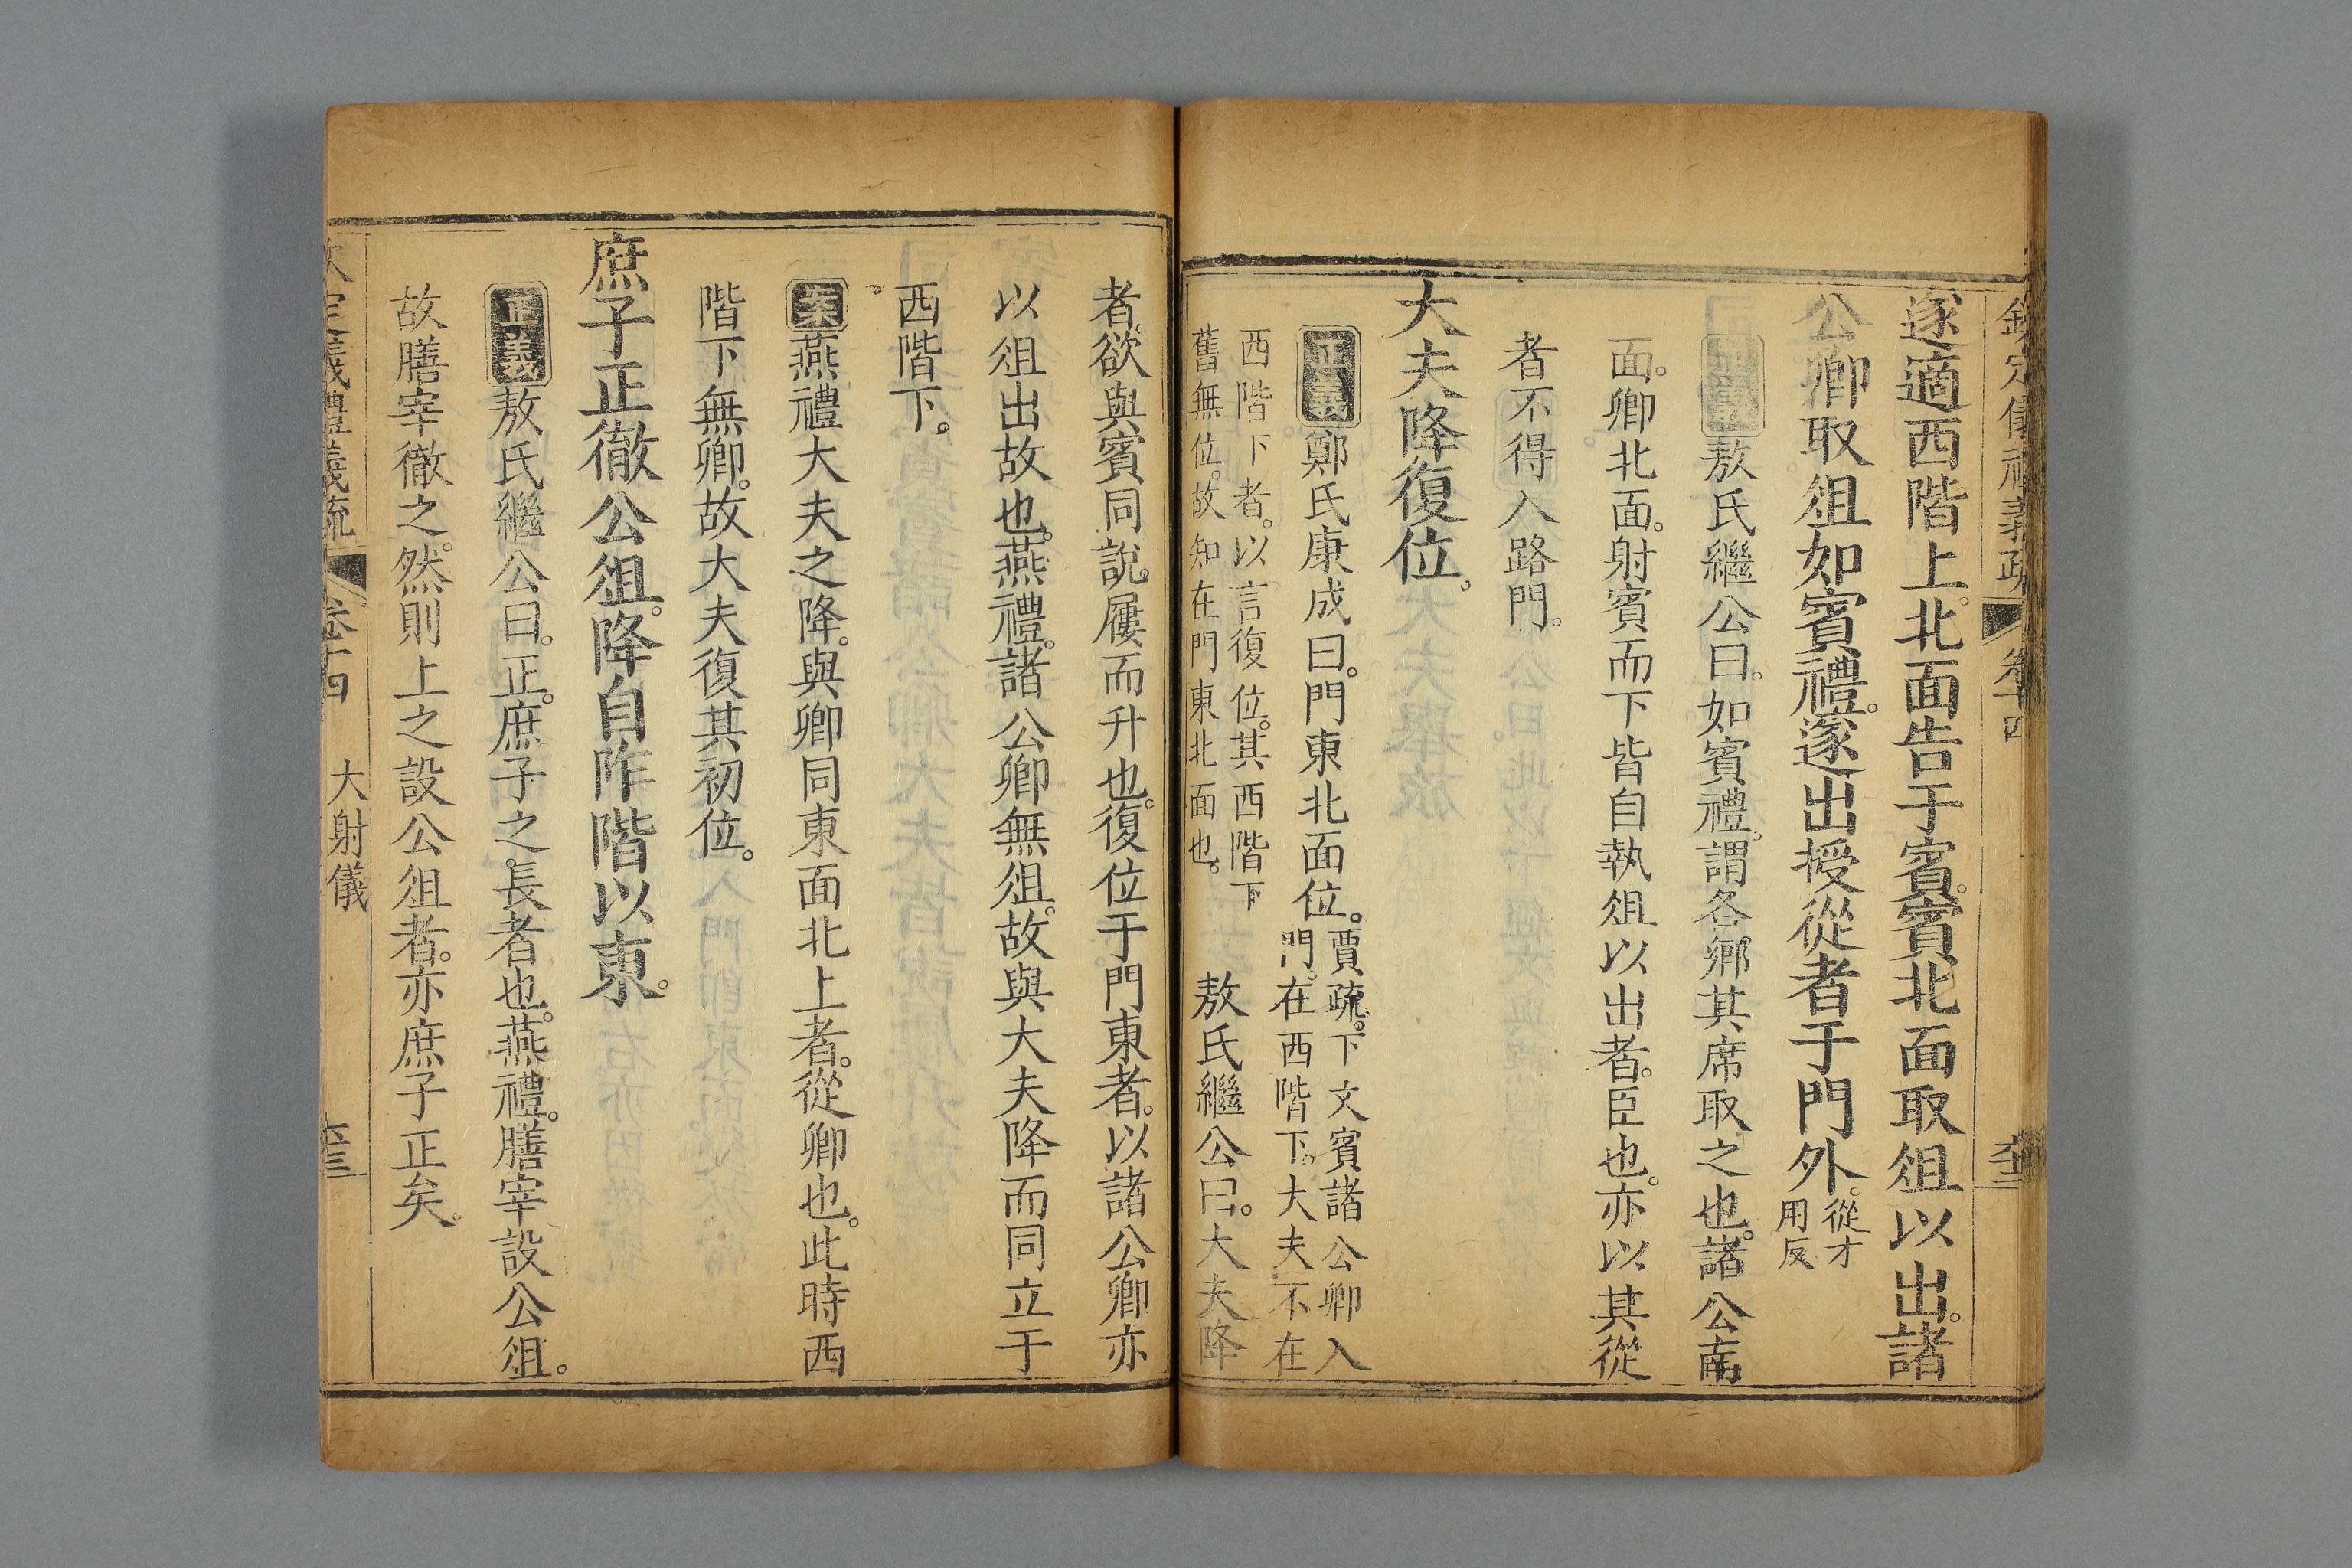 欽定儀禮義疏 卷十四
遂適西階上。北面告于賓。賓北面取俎以出。諸
公卿取俎如賓禮。遂出授從者于門外。從才
用反
正義敖氏繼公曰。如賓禮。謂各鄉其席取之也。諸公南
面。卿北面。射賓而下皆自執俎以出者。臣也。亦以其從
者不得入路門。
大夫降復位。
正義鄭氏康成曰。門東北面位。賈疏。下文賓諸公卿入
門。在西階下。大夫不在
西階下者。以言復位。其西階下
舊無位。故知在門東北面也。敖氏繼公曰。大夫降
者。欲與賓同說屨而升也。復位于門東者。以諸公卿亦
以俎出故也。燕禮。諸公卿無俎。故與大夫降而同立于
西階下。
案燕禮大夫之降。與卿同東面北上者。從卿也。此時西
階下無卿。故大夫復其初位。
庶子正徹公俎。降自阼階以東。
正義敖氏繼公曰。正。庶子之長者也。燕禮。膳宰設公俎。
故膳宰徹之。然則上之設公俎者。亦庶子正矣。
欠定義禮義疏 卷十四 大射儀